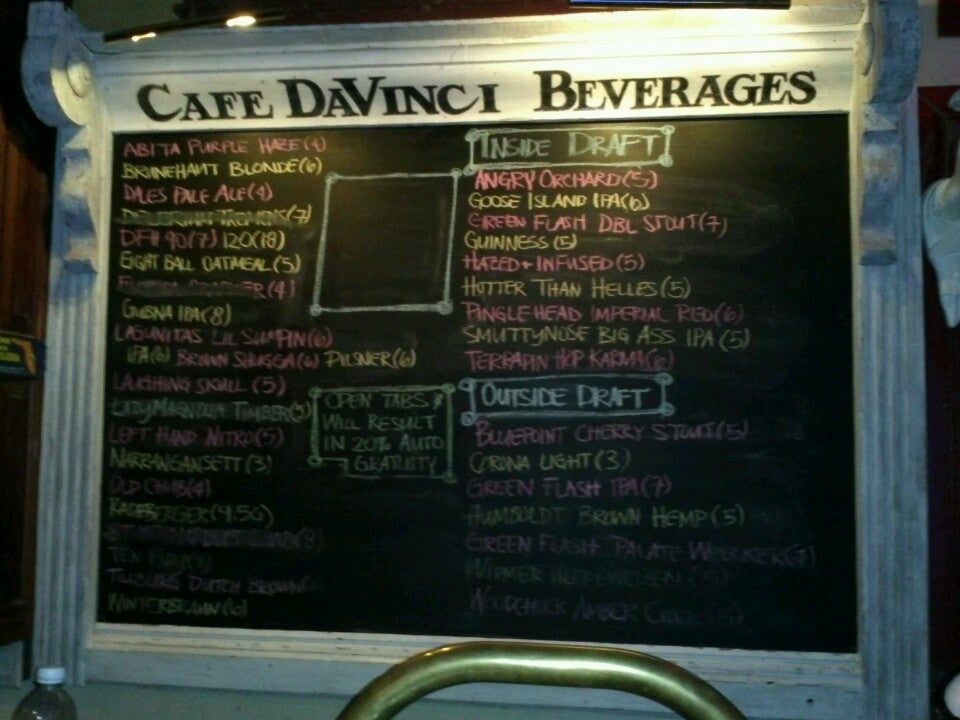 CAFE DAVINCI BEVERAGES
ABITA PURPLE HAZE (4)
BRUNEHAUT BLONDE (6)
DALES PALE ALE (4)
TREMENS (7)
DFH 90 (7) 120 (18)
EIGHT BALL OATMEAL (5)
(4)
GUBNA IPA (8)
LAGUNITAS LIL SUMPIN (6)
IPA (6) BROWN SHUGGA (6) PILSNER (6)
LAUGHING SKULL (5)
LAZY MAGNOLIA TIMBER (5)
LEFT HAND NITRO (5)
NARRANGANSETT (3)
OLD CHUB (4)
RADEBERGER (4.50)
TILBURG DUTCH BROWN
WINTERBRAUN (6)
OPEN TABS
WILL RESULT
IN 20% AUTO
GRATUITY
INSIDE DRAFT
ANGRY ORCHARD (5)
GOOSE ISLAND IPA (6)
GREEN FLASH DBL STOUT (7)
GUINNESS (5)
HAZED + INFUSED (5)
HOTTER THAN HELLES (5)
PINGLEHEAD IMPERIAL RED (6)
SMUTTYNOSE BIG ASS IPA (5)
TERRAPIN HOP KARMA (6)
OUTSIDE DRAFT
BLUEPOINT CHERRY STOUT (5)
CORONA LIGHT (3)
GREEN FLASH IPA (7)
HUMBOLDT BROWN HEMP (5)
GREEN FLASH PALATE WRECKER (7)
WIDMER HEFEWEIZEN (5)
WOODCHUCK AMBER CIDER (5)